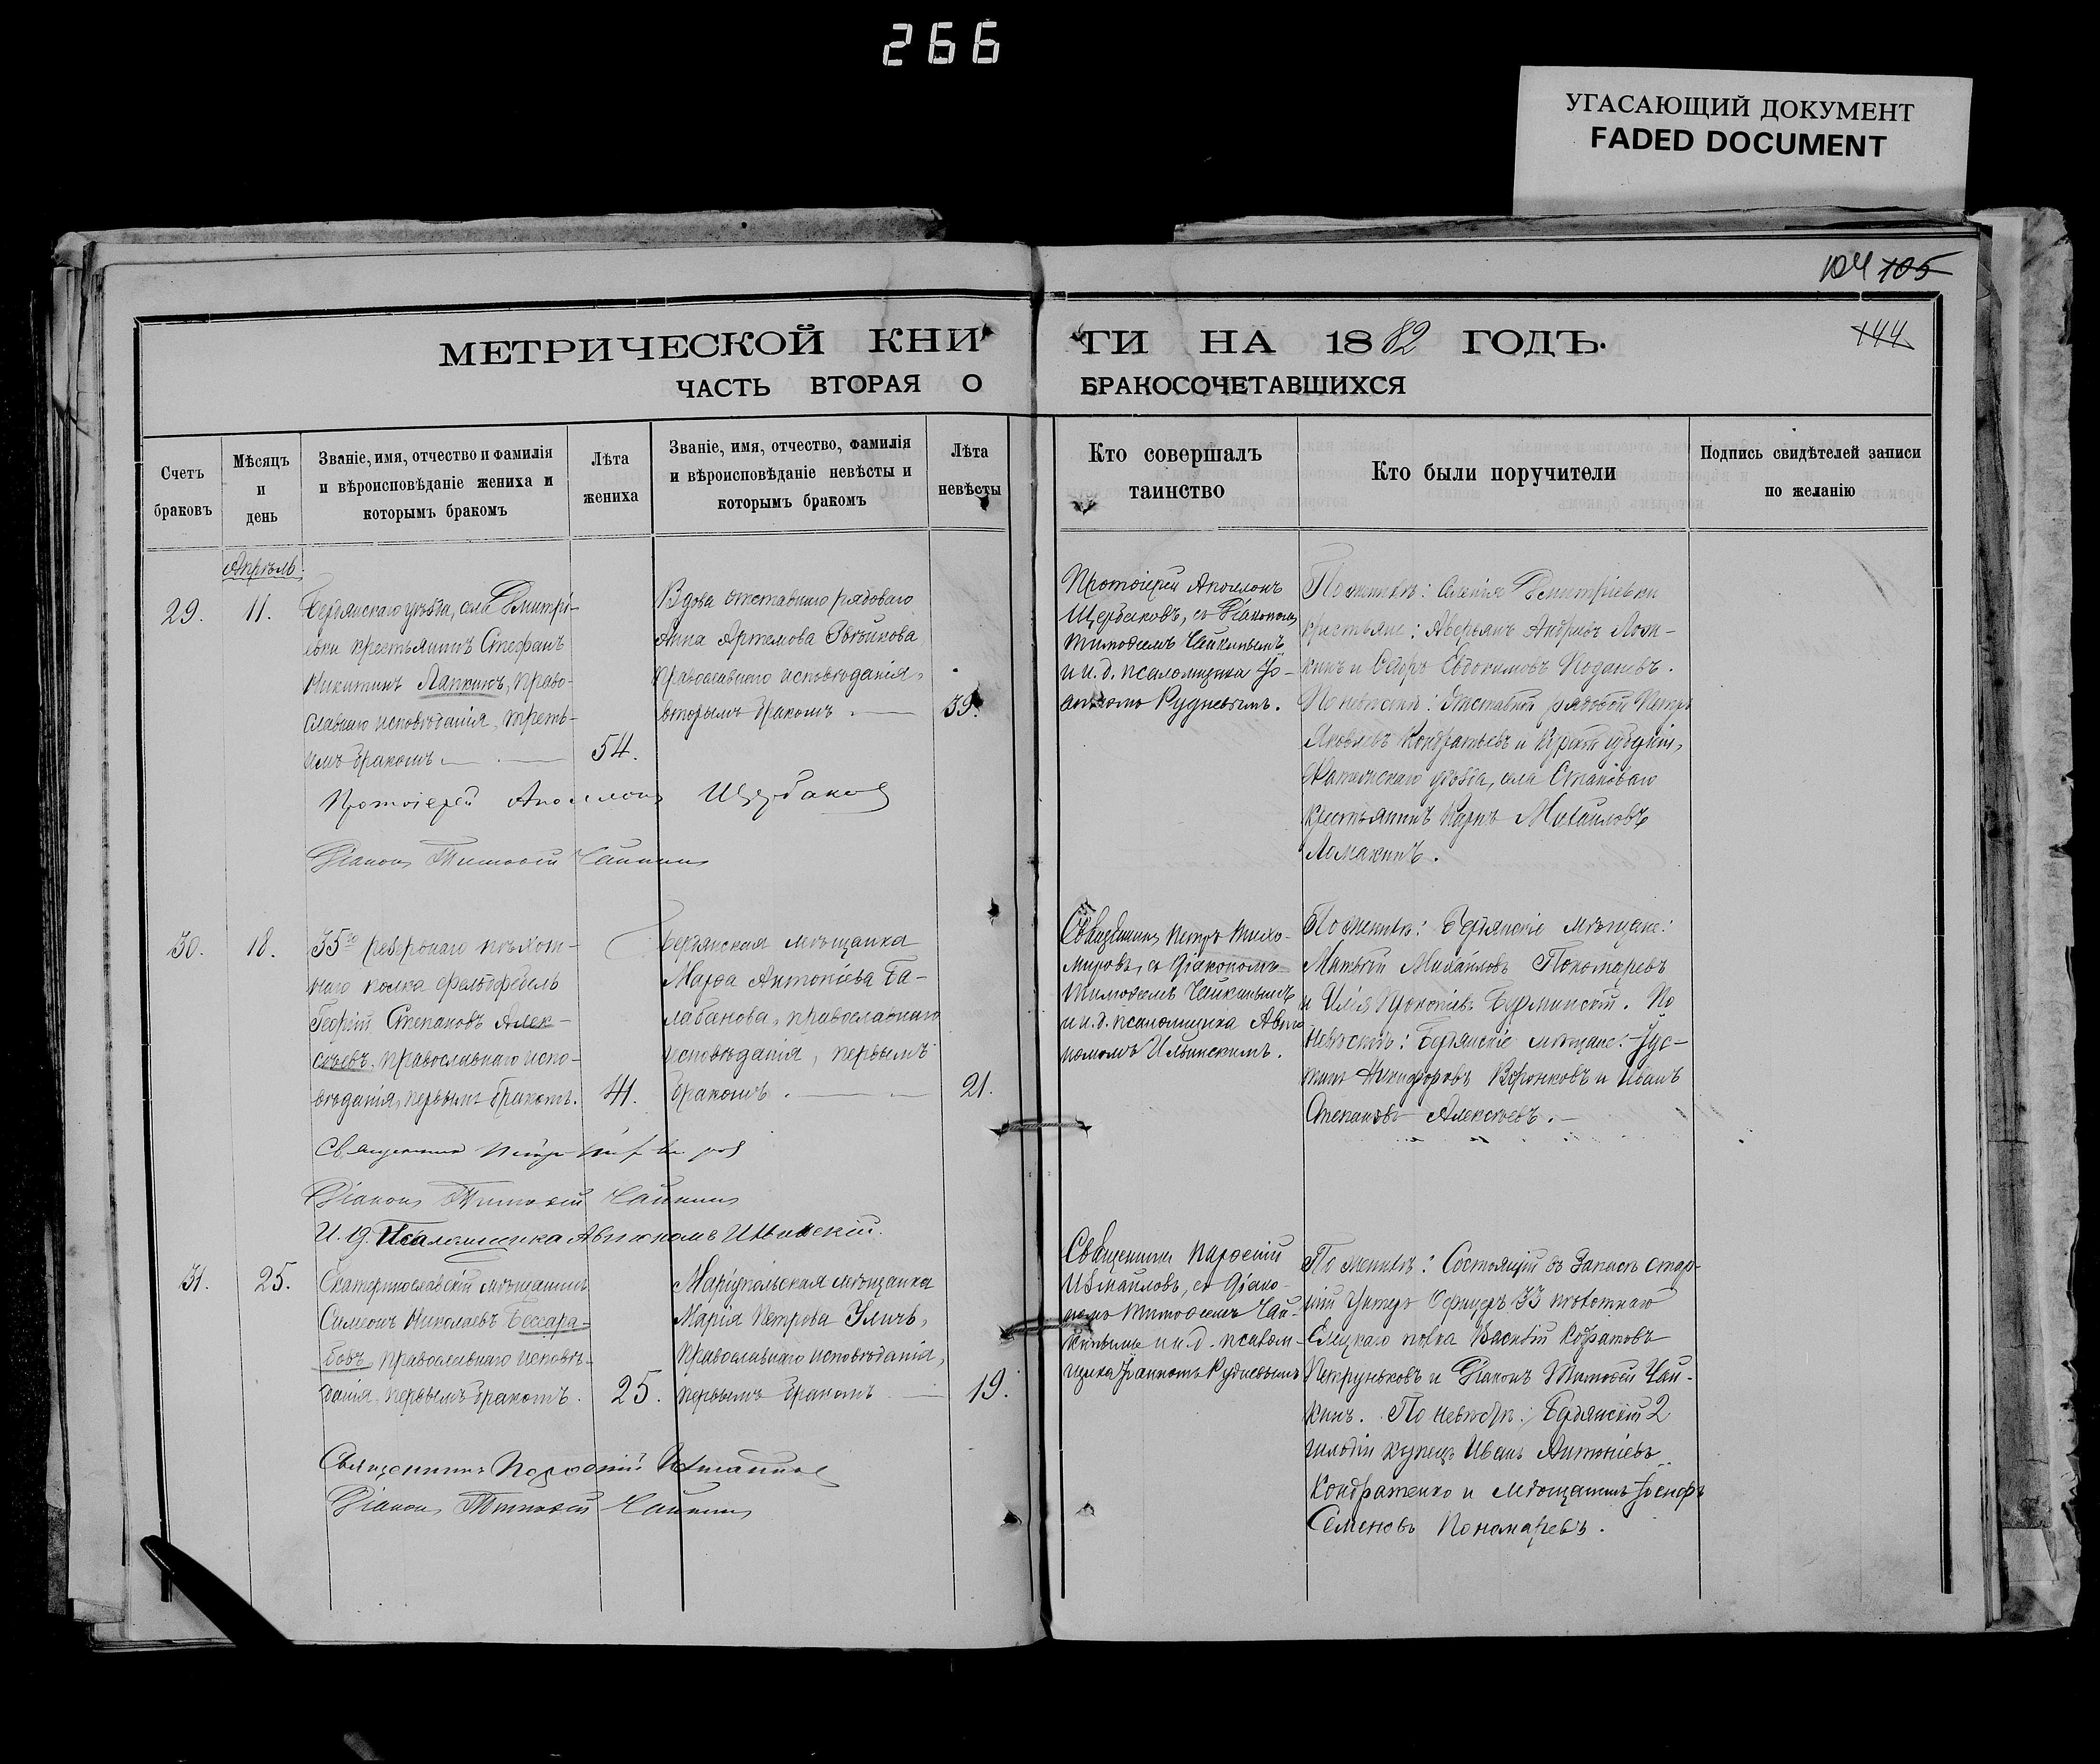 266
УГАСАЮЩИЙ ДОКУМЕНТ
FADED DOCUMENT
104 105
144
МЕТРИЧЕСКОЙ КНИГИ НА 1882 ГОДЪ.
ЧАСТЬ ВТОРАЯ О БРАКОСОЧЕТАВШИХСЯ
Счетъ
браковъ
Мѣсяцъ
и
день
Званіе, имя, отчество и фамилія
и вѣроисповѣданіе жениха и
которымъ бракомъ
Лѣта
жениха
Званіе, имя, отчество, фамилія
и вѣроисповѣданіе невѣсты и
которымъ бракомъ
Лѣта
невѣсты
Кто совершалъ
таинство
Кто были поручители
Подпись свидѣтелей записи
по желанію
Апрѣль
29.
11.
Бердянскаго уѣзда, села Дмитрі-
евки крестьянинъ Стефанъ
Никитинъ Лапкинъ, право-
славнаго исповѣданія, треть-
имъ бракомъ
54.
Вдова отставнаго рядоваго
Анна Артемова Звѣйкова
православнаго исповѣданія,
вторымъ бракомъ.
39.
Протоіерей Аполлонъ
Щербаковъ, съ Діакономъ
Тимофеемъ Чайкинымъ
и и. д. псаломщика Іо-
анномъ Рудневымъ.
По женихѣ: селенія Дмитріевки
крестьяне: Аверьянъ Андреевъ
и Ѳедоръ Евдокимовъ
По невѣстѣ: Отставной рядовой Петръ
Яковлевъ Кондратьевъ и Курской губерніи,
Фатежскаго уѣзда, села Становаго
крестьянинъ Карпъ Михайловъ
Ломакинъ.
Протоіерей Аполлонъ Щербаковъ
Діаконъ Тимофей Чайкинъ
30.
18.
35го резервнаго пѣхот-
наго полка фельдфебель
Георгій Степановъ Алек-
сѣевъ, православнаго испо-
вѣданія, первымъ бракомъ.
41.
Бердянская мѣщанка
Марфа Антоніева Ба-
лабанова, православнаго
исповѣданія, первымъ
бракомъ.
21.
Священникъ Петръ Тихо-
мировъ, съ Діакономъ
Тимофеемъ Чайкинымъ
и и. д. псаломщика Авто-
номомъ Ильинскимъ.
По женихѣ: Бердянскіе мѣщане:
Матвѣй Михайловъ Пономаревъ
и Илія Прокопіевъ. По
невѣстѣ: Бердянскіе мѣщане: Іус-
тинъ Никифоровъ Воронковъ и Иванъ
Степановъ Алексѣевъ.
Священникъ Петръ Тихомировъ
Діаконъ Тимофей Чайкинъ
И. д. Псаломщика Автономъ Ильинскій.
31.
25.
Екатеринославскій мѣщанинъ
Симеонъ Николаевъ Бессара-
бовъ, православнаго исповѣ-
данія, первымъ бракомъ.
25.
Маріупольская мѣщанка
Марія Петрова Уличъ,
православнаго исповѣданія,
первымъ бракомъ
19.
Священникъ Парфеній
Измаиловъ, съ Діако-
номъ Тимофеемъ Чай-
кинымъ и и. д. псалом-
щика Іоанномъ Рудневымъ
По женихѣ: Состоящій въ Запасѣ стар-
шій Унтеръ Офицеръ 33 пѣхотнаго
Елецкаго полка Василій Кодратовъ
Петруньковъ и Діаконъ Тимофей Чай-
кинъ. По невѣстѣ: Бердянскій 2
гильдіи купецъ Иванъ Антоніевъ
Кондратенко и мѣщанинъ Іосифъ
Семеновъ Пономаревъ.
Священникъ Парфеній Измаиловъ
Діаконъ Тимофей Чайкинъ